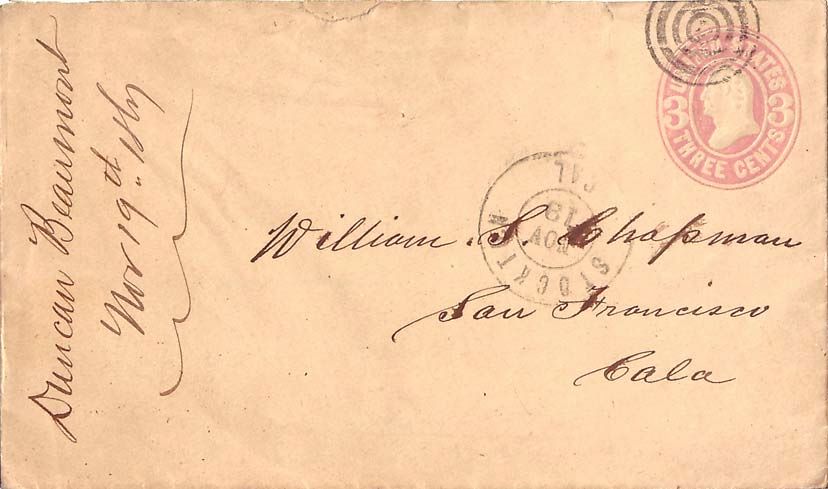 Duncan Beaumont
Nov 19th
UNITED STATES
3 3
THREE CENTS
STOCKTON
CAL
NOV
19
William S. Chapman
San Francisco
Cala